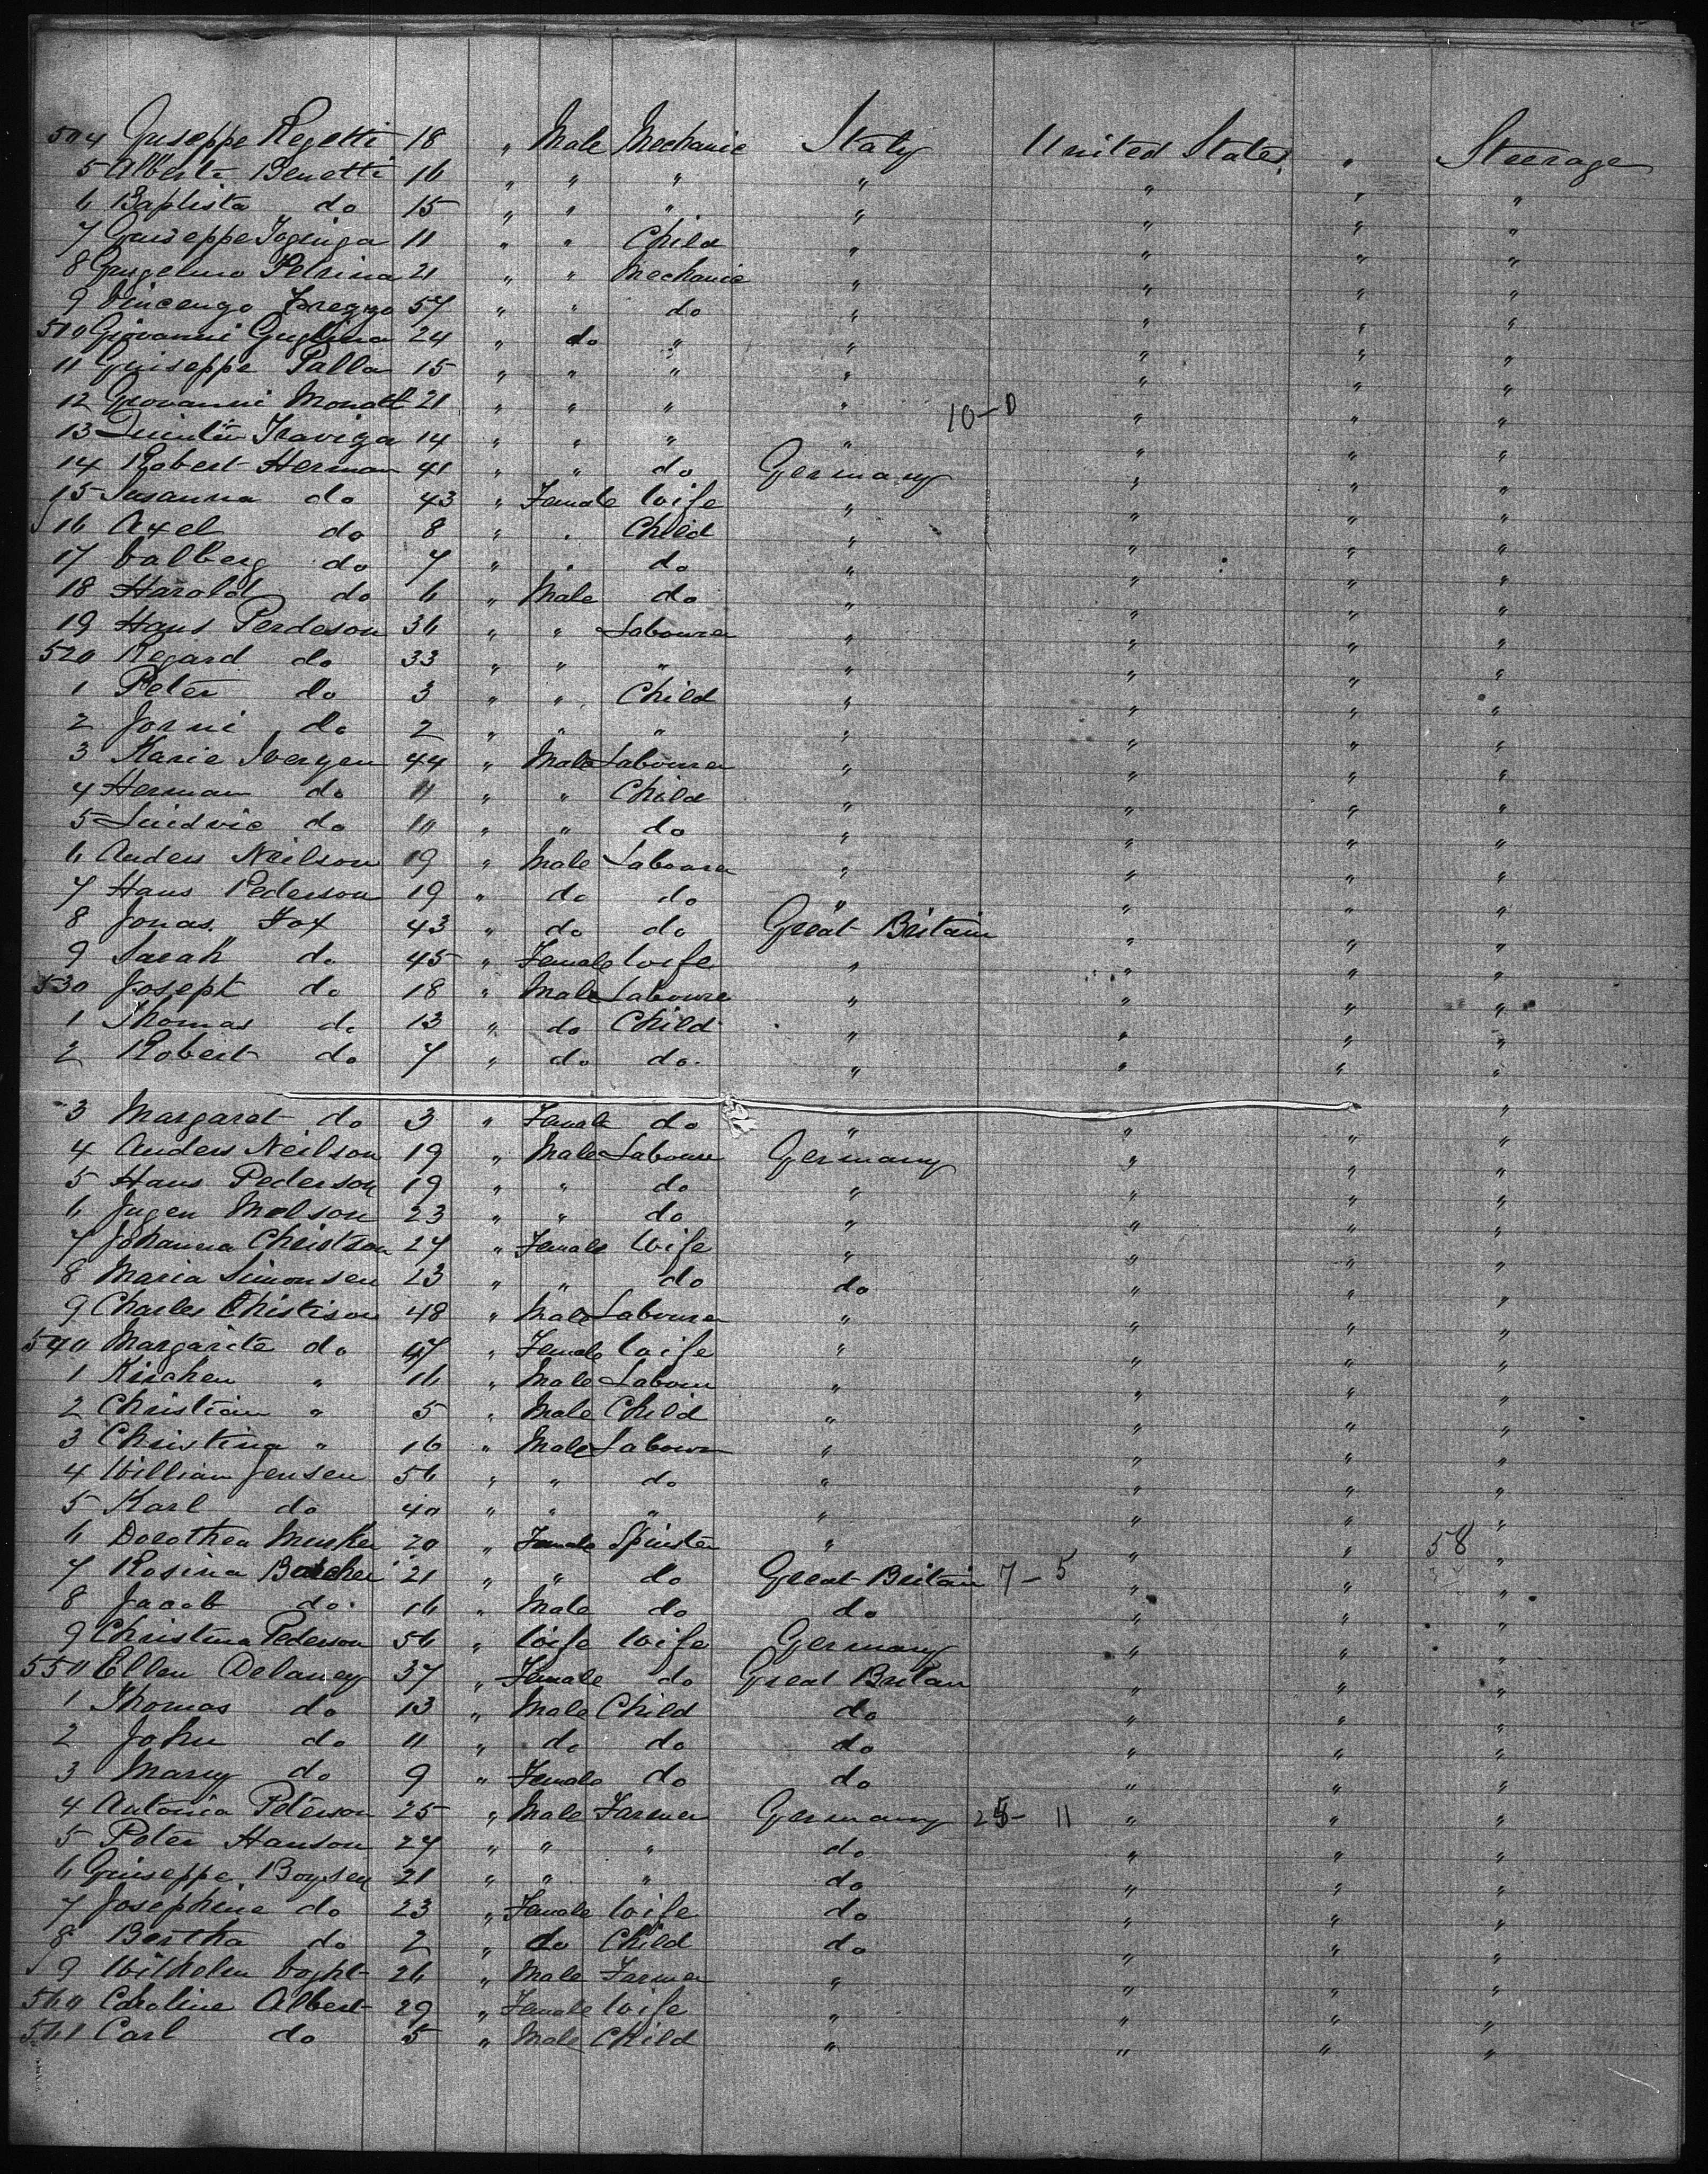 504 Guseppe Regetti 18 " Male Mechanic Italy United States " Steerage
5 Alberte Benetti 16 " " " " " " "
6 Baptista do 15 " " " " " " "
7 Guiseppe 11 " " Child " " " "
8 Petrina 21 " " Mechanic " " " "
9 Vincengo 57 " " do " " " "
510 Giovanni Guglina 24 " do " " " " "
11 Guiseppe Palla 15 " " " " " " "
12 Giovanni Monatt 21 " " " " 10-0 " " "
13 Traviga 14 " " " " " " "
14 Robert Herman 41 " " do Germany " " "
15 Susanna do 43 " Female Wife " " " "
16 Axel do 8 " " Child " " " "
17 Valberg do 7 " " do " " " "
18 Harold do 6 " Male do " " " "
19 Hans Perdeson 36 " " Labourer " " " "
520 Regard do 33 " " " " " " "
1 Peter do 3 " " Child " " " "
2 Jorni do 2 " " " " " " "
3 Karie Ivergen 44 " Male Labourer " " " "
4 Herman do 11 " " Child " " " "
5 Luidvic do 10 " " do " " " "
6 Anders Neilson 19 " Male Labourer " " " "
7 Hans Pederson 19 " do do " " " "
8 Jonas Fox 43 " do do Great Britain " " "
9 Sarah do 45 " Female Wife " " " "
530 Joseph do 18 " Male Laboure " " " "
1 Thomas do 13 " do Child " " " "
2 Robert do 7 " do do " " " "
3 Margaret do 3 " Female do " " " "
4 Anders Neilson 19 " Male Laboure Germany " " "
5 Hans Pederson 19 " " do " " " "
6 Jugen Melson 23 " " do " " " "
7 Johanna Christson 27 " Female Wife " " " "
8 Maria Simonsen 23 " " do do " " "
9 Charles Christison 48 " Male Labourer " " " "
540 Margarite do 47 " Female Wife " " " "
1 Kirchen " 16 " Male Labour " " " "
2 Christian " 5 " Male Child " " " "
3 Christina " 16 " Male Labour " " " "
4 William Jensen 56 " " do " " " "
5 Karl do 40 " " " " " " "
6 Dorothea Munker 20 " Female Spinster " " " 58 "
7 Rosina Butcher 21 " " do Great Britain 7-5 " " "
8 Jacob do 16 " Male do do " " "
9 Christina Pederson 56 " Wife Wife Germany " " "
550 Ellen Delaney 37 " Female do Great Britan " " "
1 Thomas do 13 " Male Child do " " "
2 John do 11 " do do do " " "
3 Mary do 9 " Female do do " " "
4 Antonia Peterson 25 " Male Farmer Germany 25-11 " " "
5 Peter Hanson 27 " " " do " " "
6 Guiseppe Boysen 21 " " " do " " "
7 Josephine do 23 " Female Wife do " " "
8 Bertha do 2 " do Child do " " "
9 Wilhelm Voght 26 " Male Farmer " " " "
560 Caroline Albert 29 " Female Wife " " " "
561 Carl do 5 " Male Child " " " "